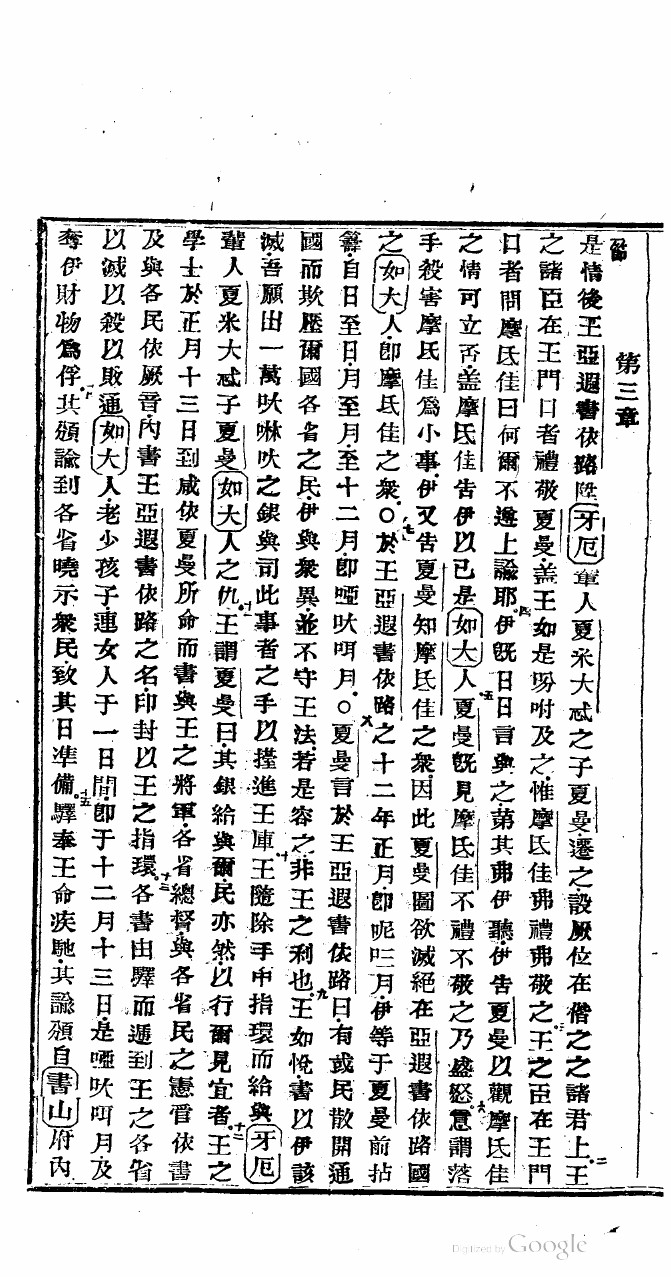 第三章
一節是情後王亞遐書依路陞牙厄軰人夏米大忒之子夏曼遷之設厥位在偕之之諸君上二王
之諸臣在王門口者禮敬夏曼蓋王如是吩咐及之惟摩氏佳弗禮弗敬之三王之臣在王門
口者問摩氏佳曰何爾不遵上諭耶四伊既日日言與之第其弗伊聽伊告夏曼以觀摩氏佳
之情可立否蓋摩氏佳告伊以己是如大人五夏曼既見摩氏佳不禮不敬之乃盛怒六意謂落
手殺害摩氏佳爲小事伊又告夏曼知摩氏佳之衆因此夏曼圖欲滅絕在亞遐書依路國
之如大人卽摩氏佳之衆○七於王亞遐書依路之十二年正月卽呢三月伊等于夏曼前拈
籌自日至日月至月至十二月卽啞吠咡月○八夏曼言於王亞遐書依路曰有或民散開通
國而欺壓爾國各省之民伊與衆異並不守王法若是容之非王之利也九王如悅書以伊該
滅吾願出一萬吠啉吠之銀與司此事者之手以擡進王庫十王隨除手中指環而給與牙厄
軰人夏米大忒子夏曼如大人之仇十一王謂夏曼曰其銀給與爾民亦然以行爾見宜者十二王之
學士於正月十三日到咸依夏曼所命而書與王之將軍各省總督與各省民之憲官依書
及與各民依厥音內書王亞遐書依路之名印封以王之指環十三各書由驛而遞到王之各省
以滅以殺以敗通如大人老少孩子連女人于一日間卽于十二月十三日是啞吠咡月及
奪伊財物爲俘十四其頒諭到各省曉示衆民致其日準備十五驛奉王命疾馳其諭頒自書山府內
Digitized by Google